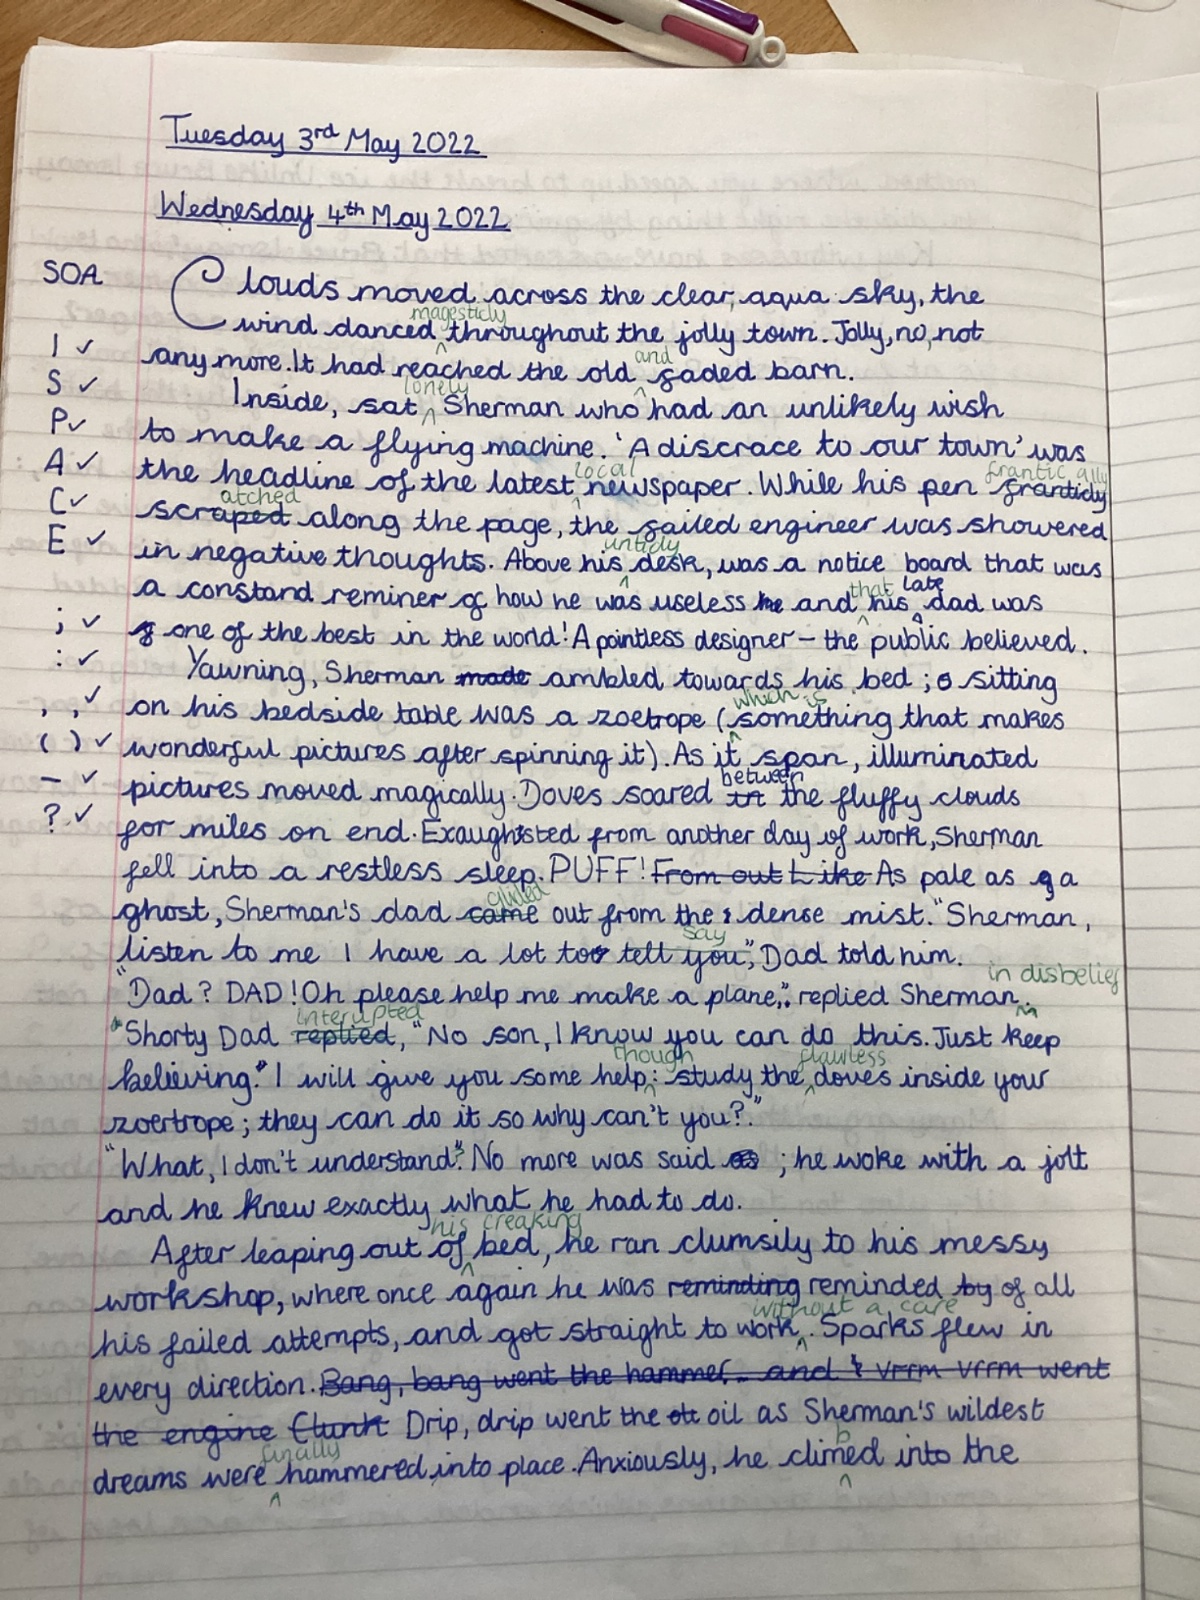 Tuesday 3rd May 2022
Wednesday 4th May 2022
SOA
Clouds moved across the clear, aqua sky, the
magesticly
wind danced throughout the jolly town. Jolly, no, not
and
I ✓ any more. It had reached the old faded barn.
lonely
S ✓ Inside, sat Sherman who had an unlikely wish
P ✓ to make a flying machine. 'A discrace to our town' was
local frantic ally
A ✓ the headline of the latest newspaper. While his pen franticly
atched
C ✓ scraped along the page, the failed engineer was showered
untidy
E ✓ in negative thoughts. Above his desk, was a notice board that was
that late
a constand reminer of how he was useless he and his dad was
; ✓ one of the best in the world! A pointless designer – the public believed.
: ✓ Yawning, Sherman made ambled towards his bed; sitting
which is
, , ✓ on his bedside table was a zoetrope (something that makes
( ) ✓ wonderful pictures after spinning it). As it span, illuminated
between
– ✓ pictures moved magically. Doves soared in the fluffy clouds
? ✓ for miles on end. Exaughsted from another day of work, Sherman
fell into a restless sleep. PUFF! From out Like As pale as a
glided
ghost, Sherman's dad came out from the dense mist. "Sherman,
say
listen to me I have a lot too tell you", Dad told him.
in disbelief
"Dad? DAD! Oh please help me make a plane," replied Sherman.
interupted
"Shorty Dad replied, "No son, I know you can do this. Just keep
though flawless
believing." I will give you some help: study the doves inside your
zoertrope; they can do it so why can't you?"
"What, I don't understand". No more was said ; he woke with a jolt
and he knew exactly what he had to do.
his creaking
After leaping out of bed, he ran clumsily to his messy
workshop, where once again he was reminding reminded by of all
without a care
his failed attempts, and got straight to work. Sparks flew in
every direction. Bang, bang went the hammer, and vrrm vrrm went
the engine Clunk Drip, drip went the oil as Sherman's wildest
finally b
dreams were hammered into place. Anxiously, he climed into the